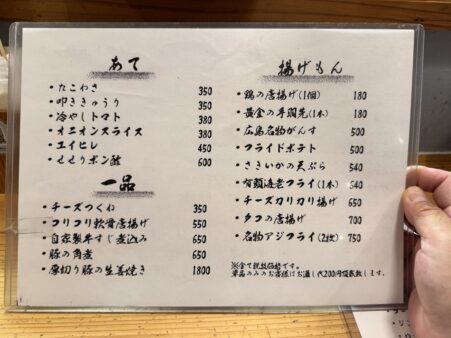 あて
・たこわさ 350
・叩ききゅうり 350
・冷やしトマト 380
・オニオンスライス 380
・エイヒレ 450
・せせりポン酢 600
一品
・チーズつくね 350
・コリコリ軟骨唐揚げ 550
・自家製牛すじ煮込み 650
・豚の角煮 650
・厚切り豚の生姜焼き 1800
揚げもん
・鶏の唐揚げ(1個) 180
・黄金の手羽先(1本) 180
・広島名物がんす 500
・フライドポテト 500
・さきいかの天ぷら 540
・有頭海老フライ(1本) 540
・チーズカリカリ揚げ 650
・タコの唐揚げ 700
・名物アジフライ(2枚) 750
※全て税抜価格です。
単品のみのお客様はお通し代200円頂戴致します。